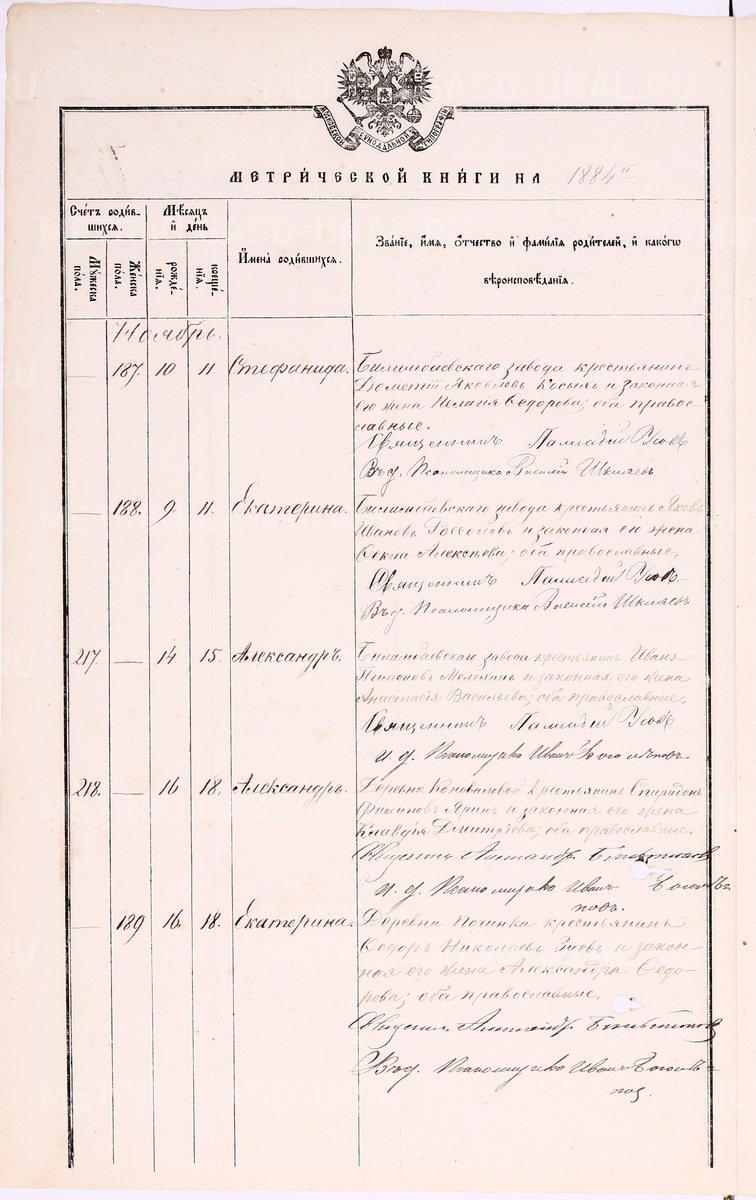 МЕТРИЧЕСКОЙ КНИГИ НА 1884
Счетъ родив-
шихся.
Мѣсяцъ
и день
Имена родившихся.
Званіе, имя, отчество и фамилія родителей, и какого
вѣроисповѣданія.
Мужеска
пола.
Женска
пола.
рожде-
нія.
креще-
нія.
Ноябрь.
— 187. 10 11 Стефанида. Билимбаевскаго завода крестьянинъ
Дометій Яковлевъ Косыхъ и законная
его жена Пелагія Ѳедорова; оба право-
славные.
Священникъ Палладій Усовъ
Въ д. Псаломщика Василій Шкляевъ
— 188. 9 11. Екатерина. Билимбаевскаго завода крестьянинъ Яковъ
Ивановъ и законная его жена
Ѳекла Алексѣева; оба православные.
Священникъ Палладій Усовъ
Въ д. Псаломщика Василій Шкляевъ
217. — 14 15. Александръ. Билимбаевскаго завода крестьянинъ Иванъ
Пименовъ и законная его жена
Анастасія Васильева; оба православные.
Священникъ Палладій Усовъ
И. д. Псаломщика Иванъ
218. — 16 18. Александръ. Деревни Коноваловой крестьянинъ Спиридонъ
Филиповъ Яринъ и законная его жена
Клавдія Дмитріева; оба православные.
Священникъ
И. д. Псаломщика Иванъ
— 189 16. 18. Екатерина. Деревни Починка крестьянинъ
Ѳедоръ Николаевъ Зуевъ и закон-
ная его жена Александра Ѳедо-
рова; оба православные.
Священникъ
Въ д. Псаломщика Иванъ